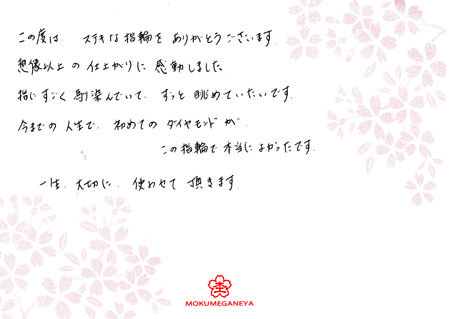 この度は ステキな指輪を ありがとうございます.
想像以上の 仕上がりに 感動しました
指にすごく 馴染んでいて、ずっと 眺めていたいです.
今までの 人生で、初めての ダイヤモンド が、
この指輪で本当によかったです.
一生、大切に、使わせて 頂きます.
MOKUMEGANEYA